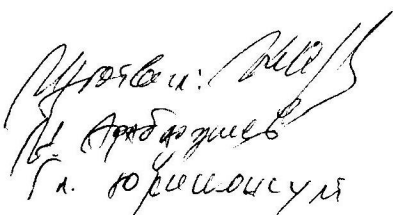 Изготвил:
Арабаджиев
Гл. юрисконсулт